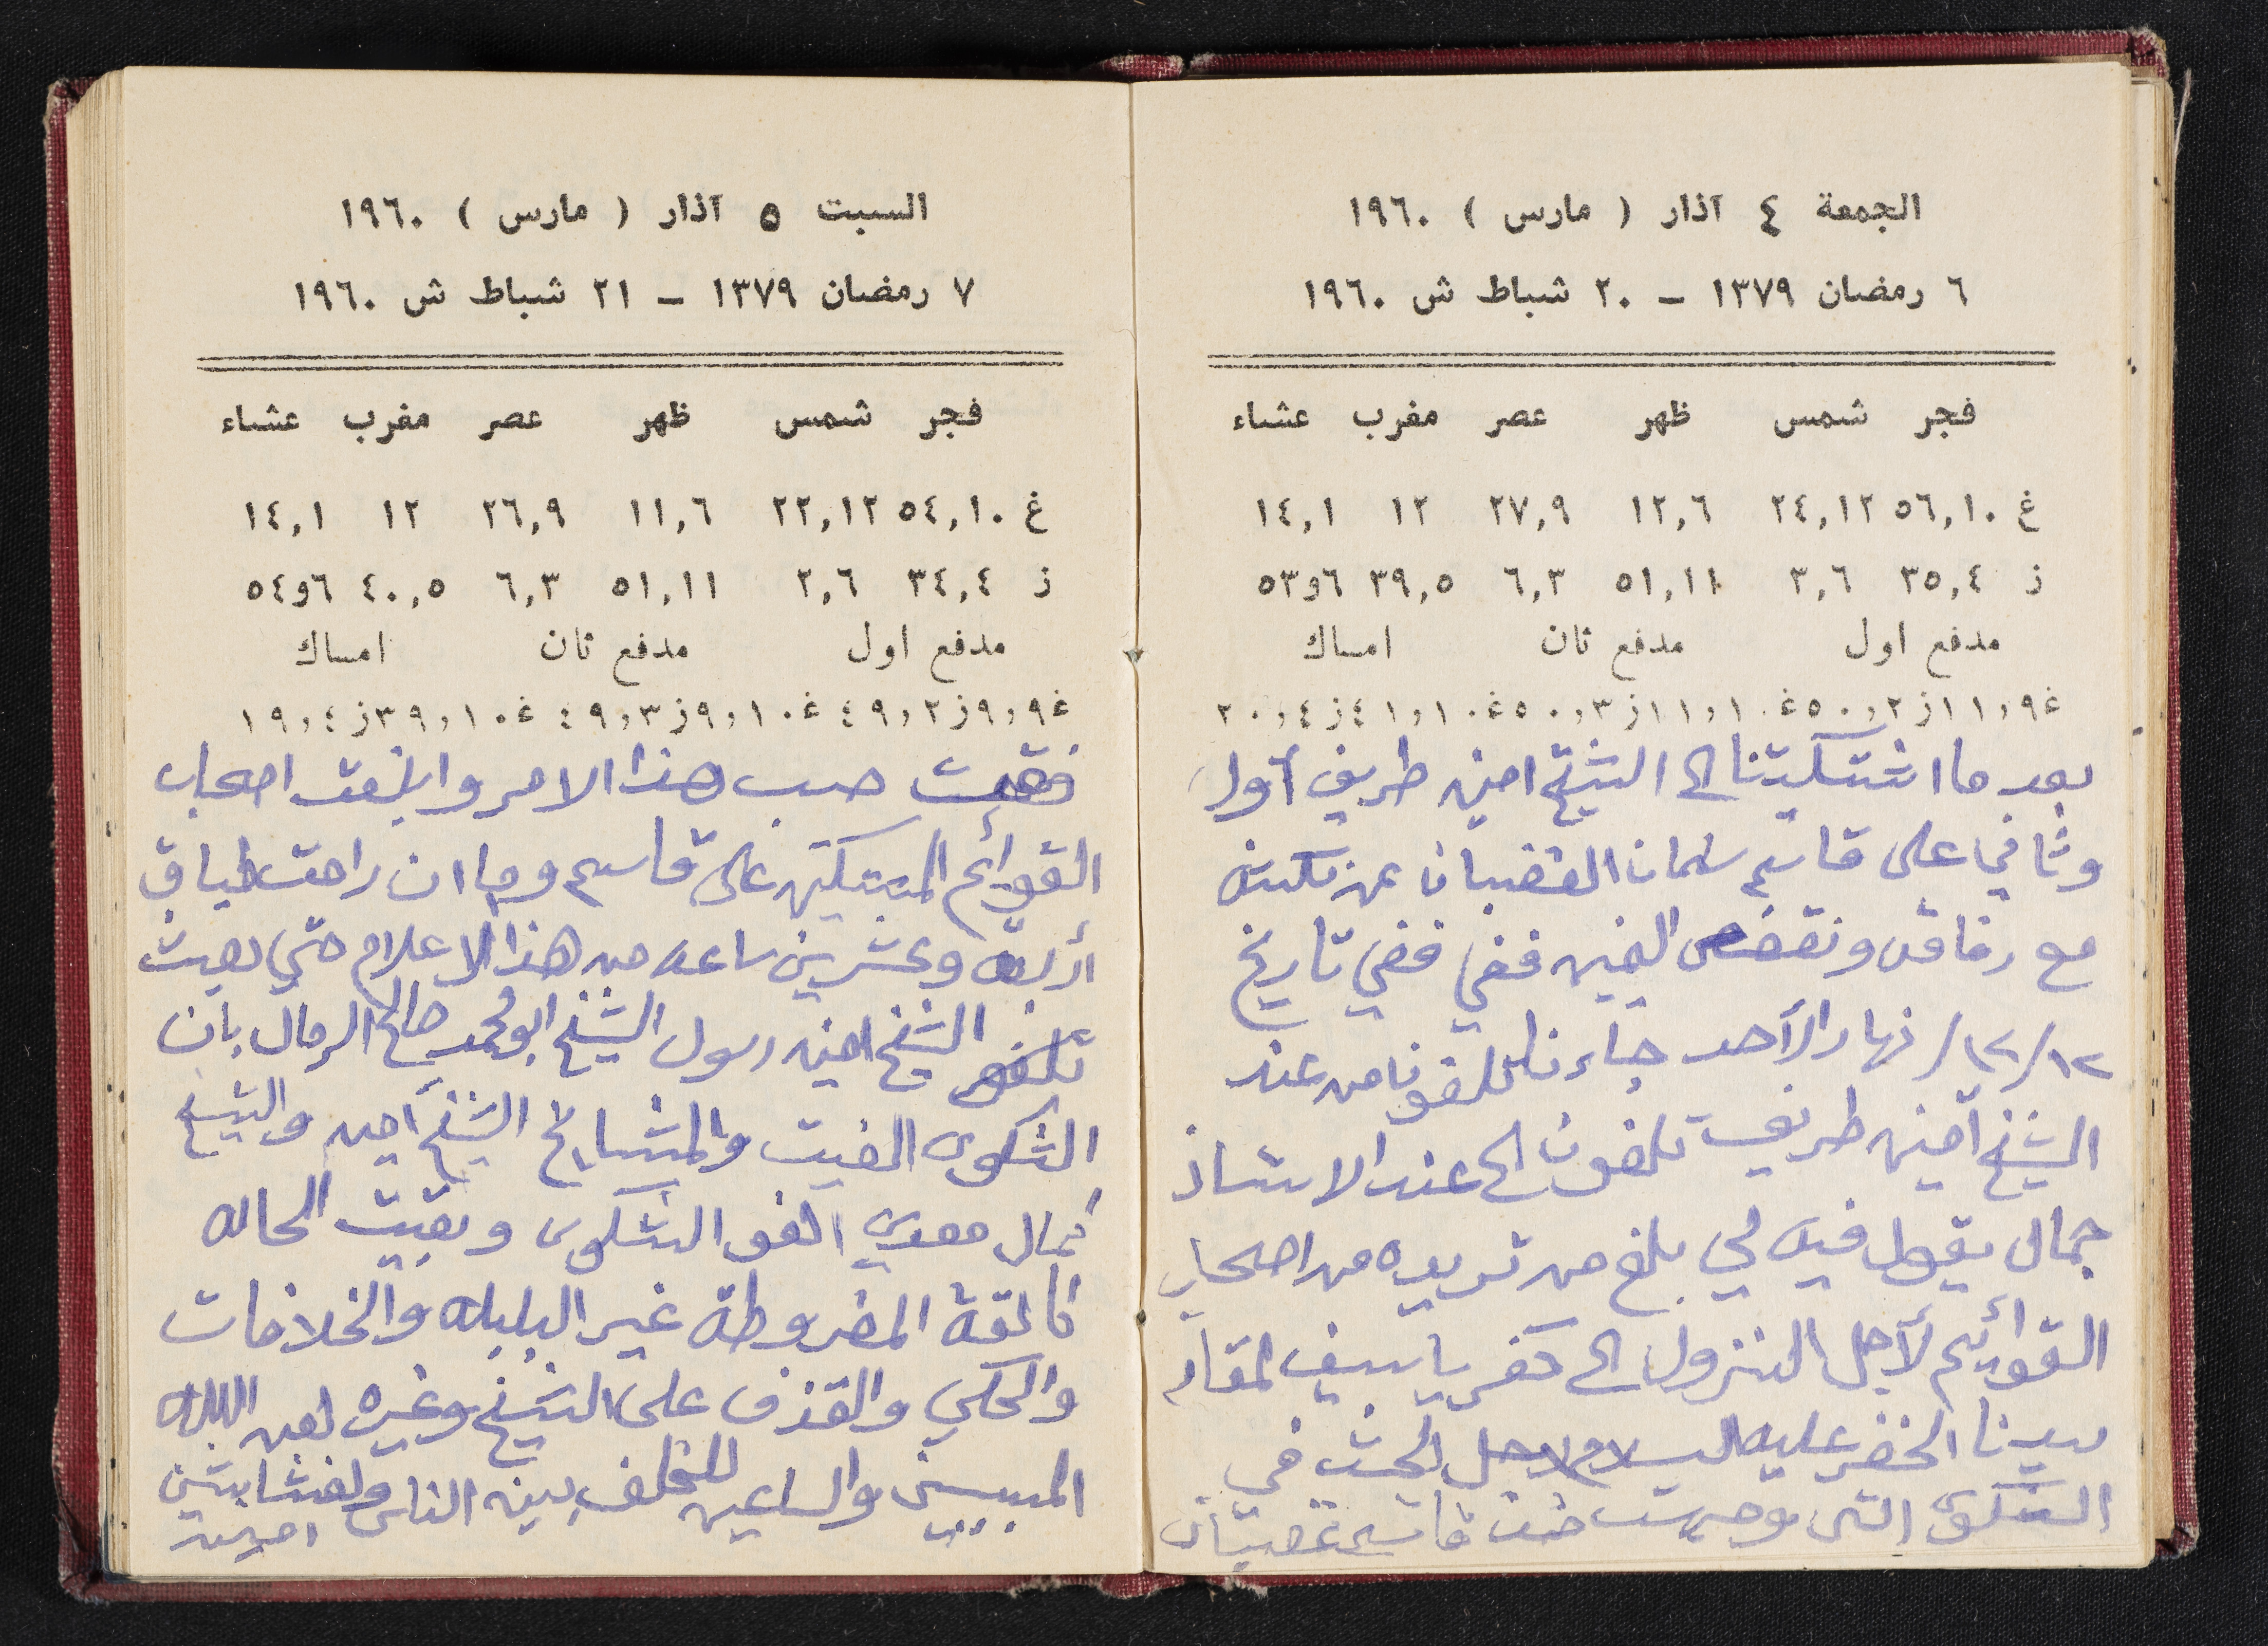 الجمعة ٤ آذار ( مارس ) ١٩٦٠
٦ رمضان ١٣٧٩ - ٢٠ شباط ش ١٩٦٠
فجر شمس ظهر عصر مغرب عشاء
غ ٥٦,١٠ ٢٤,١٢ ١٢,٦ ٢٧,٩ ١٢ ١٤,١
ز ٣٥,٤ ٣,٦ ٥١,١١ ٦,٣ ٣٩,٥ ٦و٥٣
مدفع اول مدفع ثان امساك
غ١١,٩ز٥٠,٢غ١١,١٠ز٥٠,٣غ٤١,١٠ز٢٠,٤
بعد ما اشتكيتنا الى الشيخ امين طريف اولا
وثاني على قاسم سلمان القضبان عن
مع رفاقه اليمين ففي ففي تاريخ
١٢/١٢/ نهار الأحد جاءنا تلفونا من عند
الشيخ أمين طريف تلفون الى عند الاستاذ
جمال يقول فيه لي بلغ من تريده من اصحاب
القوائم لأجل النزول الى كفر ياسيف لمقام
سيدنا الخضر عليه السلام لاجل البحث في
الشكوى التي ضد قاسم غضبان
السبت ٥ آذار ( مارس ) ١٩٦٠
٧ رمضان ١٣٧٩ - ٢١ شباط ش ١٩٦٠
فجر شمس ظهر عصر مغرب عشاء
غ ٥٤,١٠ ٢٢,١٢ ١١,٦ ٢٦,٩ ١٢ ١٤,١
ز ٣٤,٤ ٢,٦ ٥١,١١ ٦,٣ ٤٠,٥ ٦و٥٤
مدفع اول مدفع ثان امساك
غ٩,٩ز٤٩,٢غ٩,١٠ز٤٩,٣غ٣٩,١٠ز١٩,٤
فقمت حسب هذا الامر وابلغت اصحاب
القوائم المشتكين على قاسم وما ان راحت
أربعة وعشرين ساعه من هذا الاعلام حتى بعث
الشيخ امين رسول الشيخ ابو محمد صالح الرمال بان
الشكوى الغيت والمشايخ الشيخ أمين والشيخ
كمال معدي الغو الشكوى وبقيت الحاله
المفروطة غير البلبله والخلافات
والحكي والقذف على الشيخ وغيره لعن الله
المسببين والساعين للخلف بين الناس